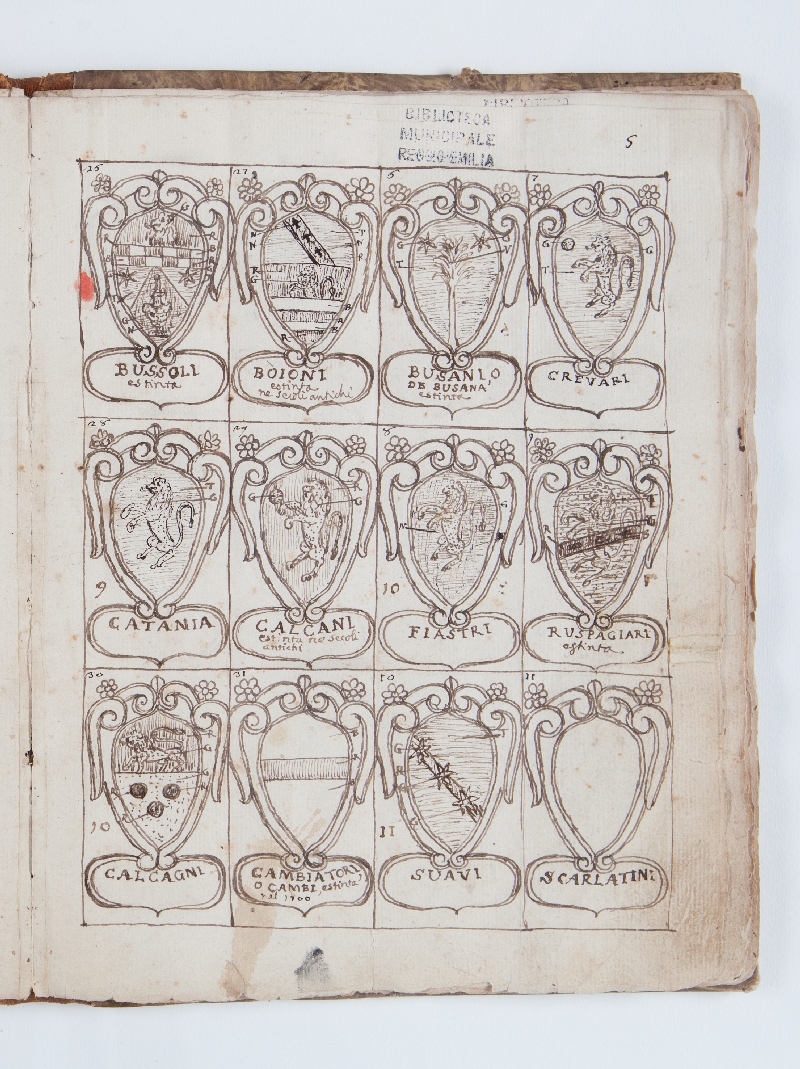 BIBLIOTECA
MUNICIPALE
REGGIO-EMILIA
5
26
27
6
7
BUSSOLI
estinta
BOIONI
estinta
ne secoli antichi
BUSANIO
DE BUSANA
estinta
CREVARI
28
29
8
9
9
10
CATANIA
CALCANI
estinta ne secoli
antichi
FIASTRI
RUSPAGIARI
estinta
30
31
10
11
10
11
CALCAGNI
CAMBIATORI
O CAMBI estinta
nel 1700
SUAVI
SCARLATINI